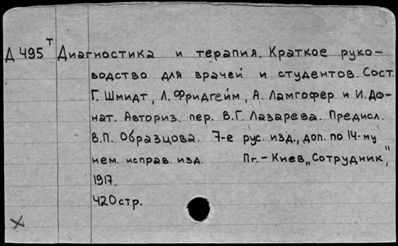 Д 495 т Диагностика и терапия. Краткое руко-
водство для врачей и студентов. Сост.
Г. Шмидт, Л. Фридгейм, А. Ламгофер и И. До-
нат. Авториз. пер. В.Г. Лазарева. Предисл.
В.П. Образцова. 7-е рус. изд., доп. по 14-му
нем. исправ. изд. Пг. - Киев, "Сотрудник",
1917.
420 стр.